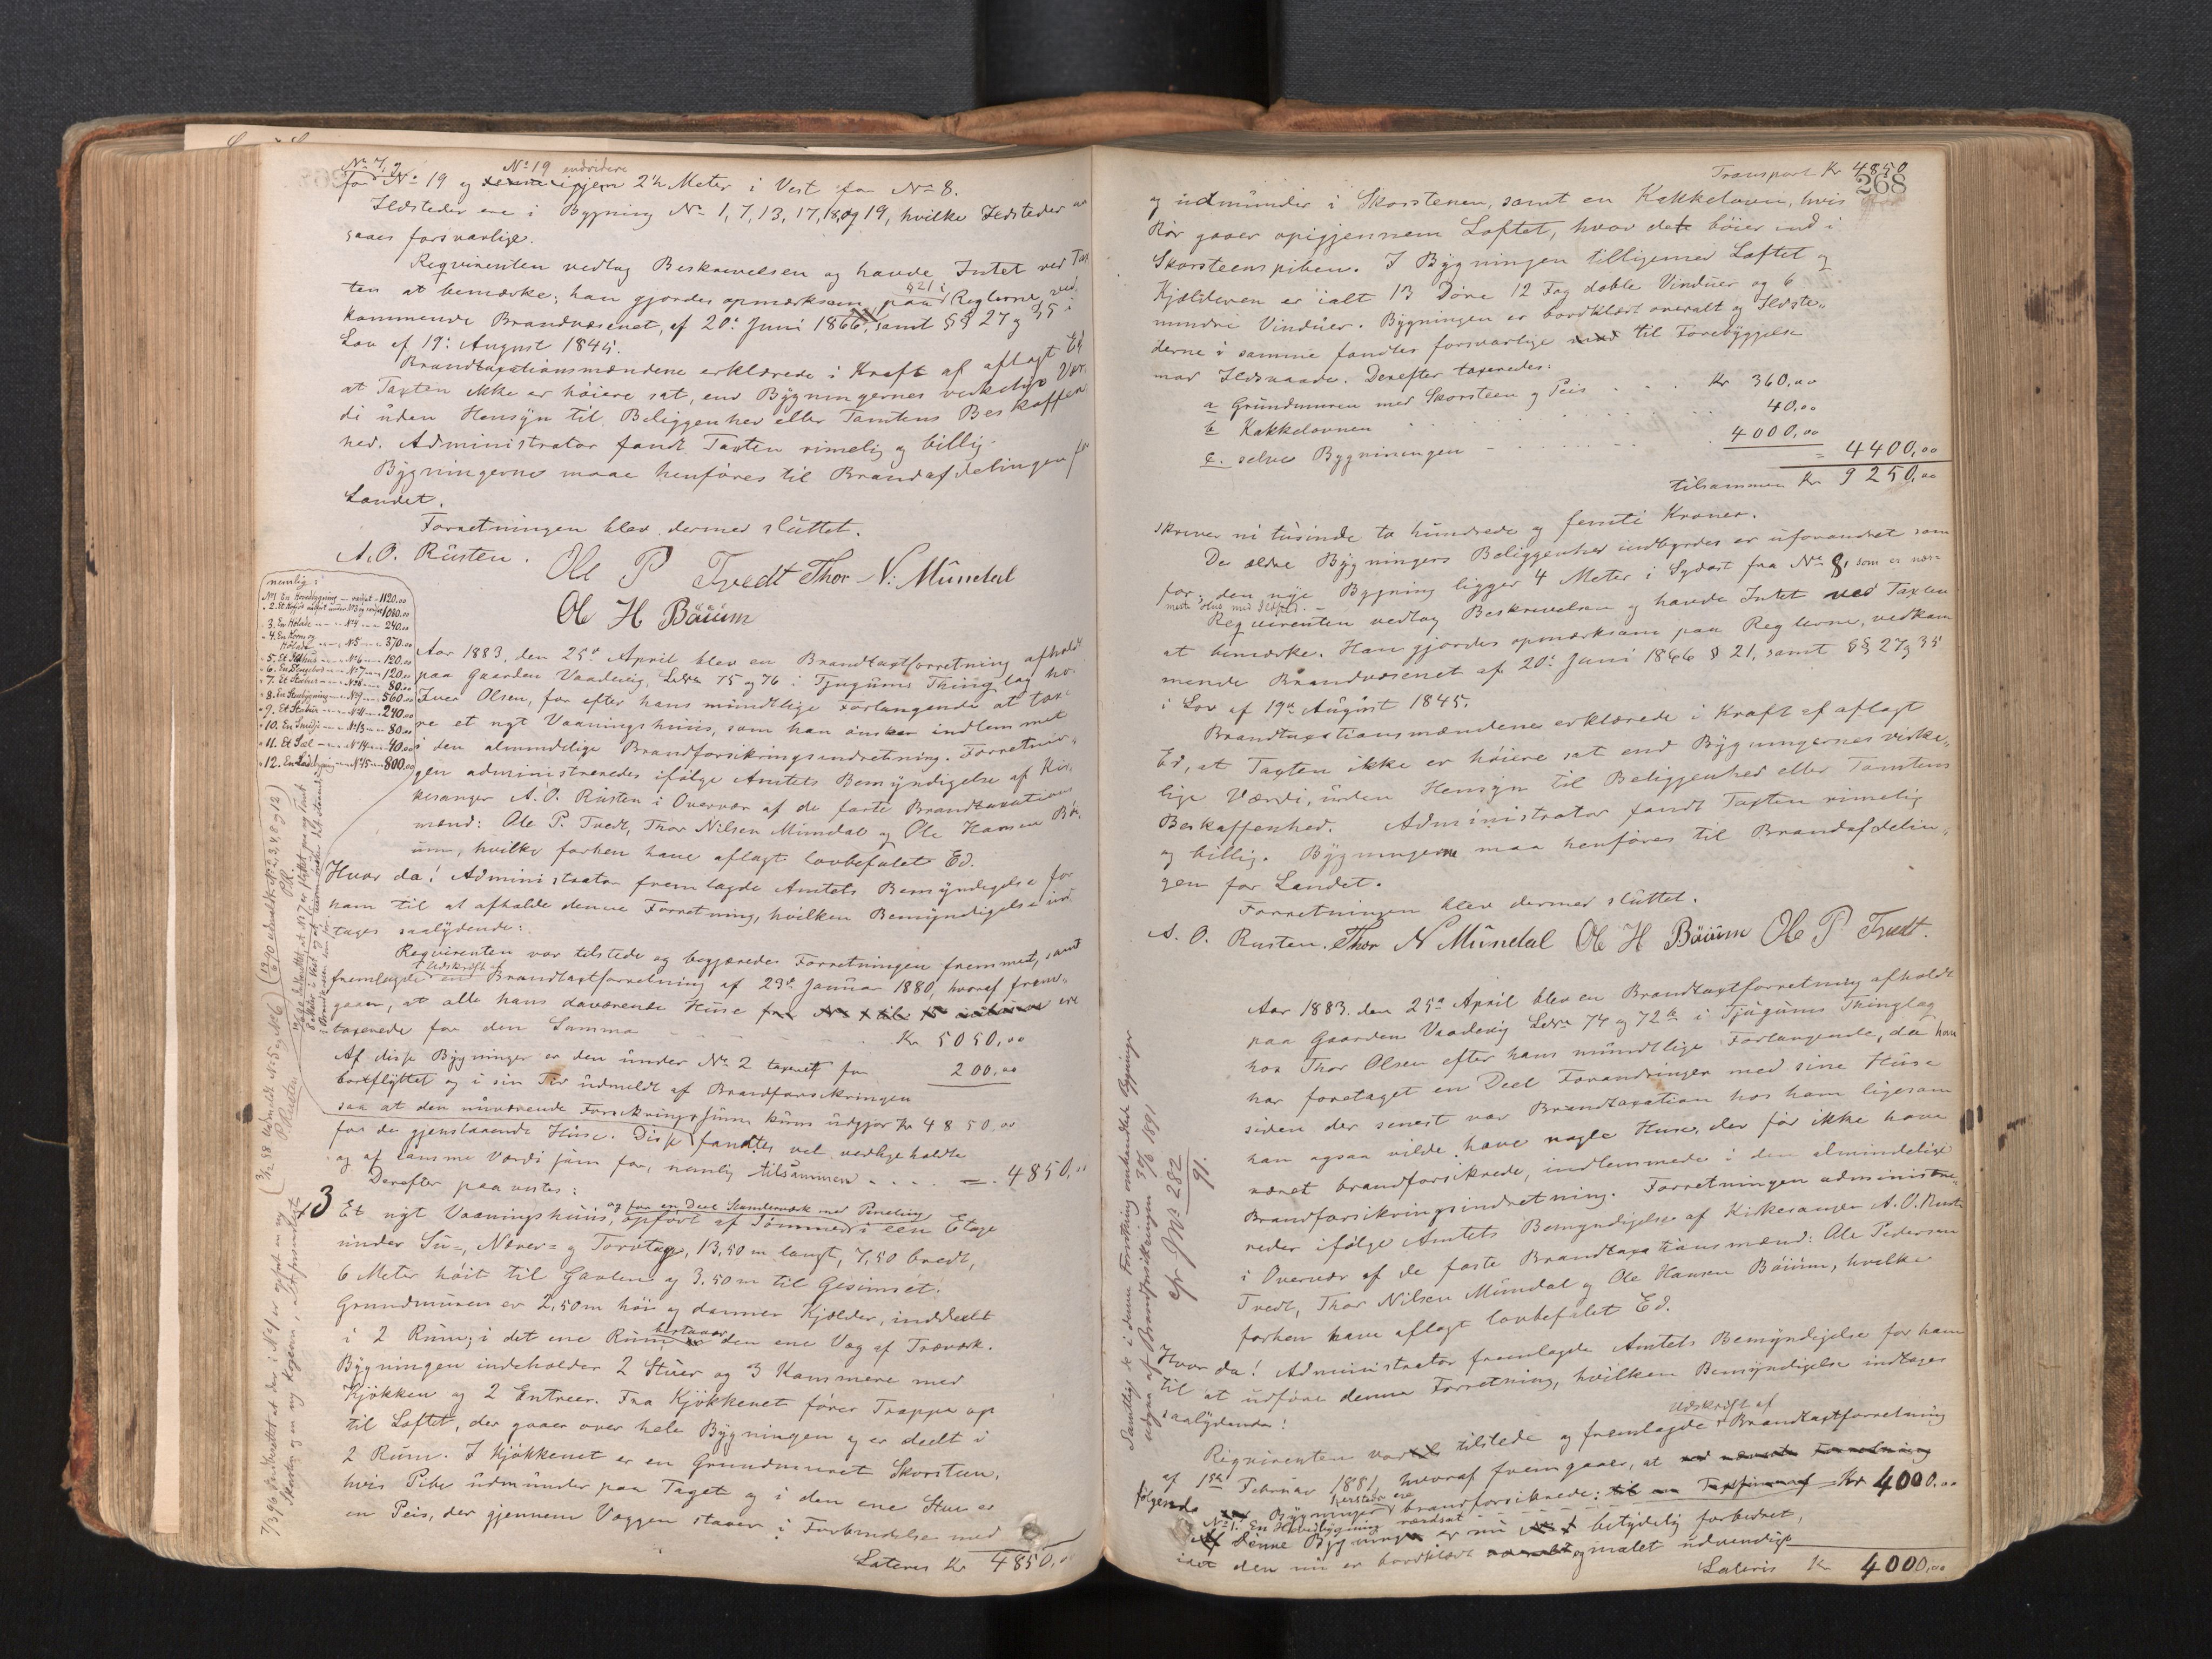 No 7,2 No 19 endvidere
for No 19 og igjem 2½ Meter i Vest for No 8.
Ildsteder ere i Bygning No 1, 7, 13, 17, 18, og 19, hvilke Ildsteder
saaes forsvarlige.
Reqvirenten vedtog Beskrivelsen og havde Intet ved Tax
ten at bemærke; han gjordes opmærksom paa § 21 i Reglerne ved
kommende Brandvæsenet, af 20de Juni 1866, samt §§ 27 og 35 i
Lov af 19de August 1845.
Brandtaxationsmændene erklærede i Kraft af aflagt Ed
at Taxten ikke er høiere sat, end Bygningernes virkelige Vær-
di uden Hensyn til Beliggenhed eller Tomtens Beskaffen
hed. Administrator fandt Taxten rimelig og billig.
Bygningerne maae henføres til Brandafdelingen for
Landet.
Forretningen blev dermed sluttet.
A. O. Rusten. Ole P Tvedt Thor N: Mündal
Ole H Böüüm
nemlig:
No 1 En Hovedbygning - værdsat - 1120.00
2. Et 1080.00
3. En Hølade - No 4 - 240.00
4. En Korn og
Hølade - No 5 - 370.00
5. Et - No 6 - 120.00
6. En - No 7 - 120.00
7. Et - No 8 - 80.00
8. En - No 9 - 560.00
9. Et Stabur - No 11 - 240.00
10. En Smidje - No 13 - 80.00
11. Et Sæl - No 14 - 40.00
12. En - No 15 - 800.00
Aar 1883, den 25de April blev en Brandtaxtforretning afholdt
paa Gaarden Vaadevig, Lbn 75 og 76 i Tjugums Thinglag ho
Iver Olsen, for efter hans mundtlige Forlangende at tax-
re et nyt Vaaningshuus, som han ønsker indlemmet
i den almindelige Brandforsikringsindretning. Forretnin-
gen administreredes ifølge Amtets Bemyndigelse af Kir-
kesanger A. O. Rusten i Overvær af de faste Brandtaxations
mænd: Ole P. Tvedt, Thor Nilsen Mündal og Ole Hansen Bö-
üm, hvilke forhen have aflagt lovbefalet Ed.
Hvor da! Administrator fremlagde Amtets Bemyndigelse for
ham til at afholde denne Forretning, hvilken Bemyndigelse ind
tages saalydende:
Reqvirenten var tilstede og begjærede Forretningen fremmet, samt
fremlagde Udskrift af en Brandtaxtforretning af 23de Januar 1880, hvoraf frem-
gaaer, at alle hans daværende Huse ere
taxerede for den Summa Kr 5050,00
Af disse Bygninger er den under No 2 taxeret for 200,00
bortflyttet og i sin Tid udmeldt af Brandforsikringen
saa at den nuværende Forsikringssum kuns udgjør Kr 4850,00
for de gjenstaaende Huse. Disse fandtes vel vedligeholdte
og af samme Værdi som før, nemlig tilsammen = 4850,
Derefter paavistes:
13 Et nyt Vaaningshuus, opført af Tømmer og for en Deel Standerværk med Paneling i een Etage
under Su-, Næver- og Torvtag, 13,50 m langt, 7,50 bredt,
6 Meter høit til Gavlene og 3.50 m til Gesimset.
Grundmuren er 2,50 m høi og danner Kjelder, inddeelt
i 2 Rum; i det ene Rum bestaaer den ene Væg af Træværk.
Bygningen indeholder 2 Stuer og 3 Kammere med
Kjøkken og 2 Entreer. Fra Kjøkkenet fører Trappe op
til Loftet, der gaaer over hele Bygningen og er deelt i
2 Rum. I Kjøkkenet er en Grundmuret Skorsteen,
hvis Pibe udmunder paa Taget og i den ene Stue er
en Peis, der gjennem Væggen staaer i Forbindelse med
Lateris Kr 4850.
Transport Kr 4850
268
og udmunder i Skorstenen, samt en Kakkelovn, hvis
Rør gaaer opigjennem Loftet, hvor det bøier ind i
Skorsteenspiben. I Bygningen tilligemed Loftet og
Kjælderen er ialt 13 Døre 12 Fag doble Vinduer og 6
mindre Vinduer. Bygningen er bordklædt overalt og Ildste-
derne i samme fandtes forsvarlige til Forebyggelse
mod Ildsvaade. Derefter taxeredes:
a Grundmuren med Skorsteen og Peis Kr 360,00
b Kakkelovnen 40,00
c. selve Bygningen 4000,00
= 4400,00
tilsammen Kr 9250,00
skriver ni tusinde to hundrede og femti Kroner.
De ældre Bygningers Beliggenhed indbyrdes er uforandret som
før; den nye Bygning ligger 4 Meter i Sydost fra No 8, som er nær-
meste Hus med Ildsted. -
Reqvirenten vedtog Beskrivelsen og havde Intet ved Taxten
at bemærke. Han gjordes opmærksom paa Reglerne, vedkom
mende Brandvæsenet af 20de Juni 1866 § 21, samt §§ 27 og 35
i Lov af 19de August 1845.
Brandtaxationsmændene erklærede i Kraft af aflagt
Ed, at Taxten ikke er høiere sat end Bygningernes virke-
lige Værdi, uden Hensyn til Beliggenhed eller Tomtens
Beskaffenhed. Administrator fandt Taxten rimelig
og billig. Bygningerne maa henføres til Brandafdelin-
gen for Landet.
Forretningen blev dermed sluttet.
A. O. Rusten. Thor N Mündal Ole H Böüüm Ole P Tvedt.
Aar 1883. den 25de April blev en Brandtaxtforretning afholdt
paa Gaarden Vaadevig Lbn 74 og 72b i Tjugums Thinglag
hos Thor Olsen efter hans mundtlige Forlangende, da han
har foretaget en Deel Forandringer med sine Huse
siden der senest var Brandtaxation hos ham ligesom
han ogsaa vilde have nogle Huse, der før ikke have
været brandforsikrede, indlemmede i den almindelige
Brandforsikringsindretning. Forretningen administre-
redes ifølge Amtets Bemyndigelse af Kirkesanger A. O. Rusten
i Overvær af de faste Brandtaxationsmænd: Ole Pedersen
Tvedt, Thor Nilsen Mündal og Ole Hansen Böüüm, hvilke
forhen have aflagt lovbefalet Ed.
Hvor da! Administrator fremlagde Amtets Bemyndigelse for ham
til at udføre denne Forretning, hvilken Bemyndigelse indtages
saalydende:
Reqvirenten var tilstede og fremlagde Udskrift af Brandtaxtforretning
af 1ste Februar 1881, hvoraf fremgaaer, at
følgende Bygninger ere brandforsikrede: Kr 4000,00
No 1. En Hovedbygning værdsat
Denne Bygning er nu betydelig forbedret,
idet den nu er bordklædt og malet udvendig
Lateris Kr 4000,00
Samtlige de i denne Forretning omhandlede Bygninger
udgaa af Brandforsikringen 30/6 1891
cfr JNo 282/91.